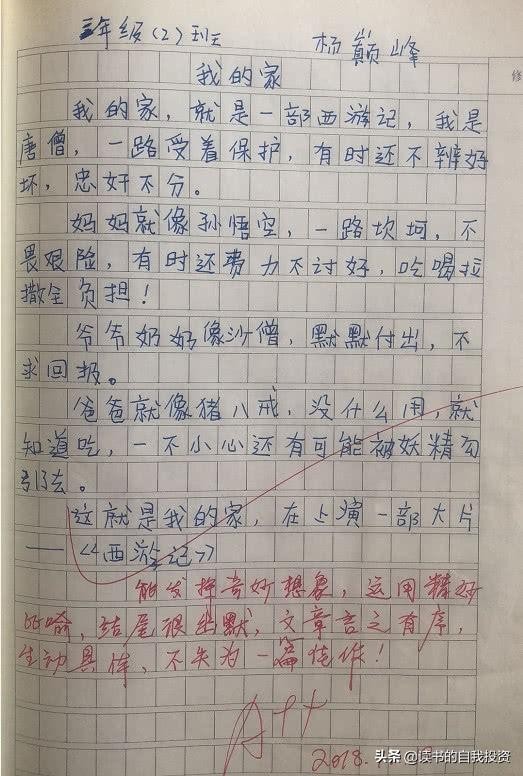 三年级(2)班 杨巅峰
我的家
我的家，就是一部西游记，我是
唐僧，一路受着保护，有时还不辨好
坏，忠奸不分。
妈妈就像孙悟空，一路坎坷，不
畏艰险，有时还费力不讨好，吃喝拉
撒全负担！
爷爷奶奶像沙僧，默默付出，不
求回报。
爸爸就像猪八戒，没什么用，就
知道吃，一不小心还有可能被妖精勾
引去。
这就是我的家，在上演一部大片
——《西游记》
能发挥奇妙想象，运用精妙
比喻，结尾很幽默，文章言之有序，
生动具体，不失为一篇佳作！
A++
2018.
头条@读书的自我投资
修